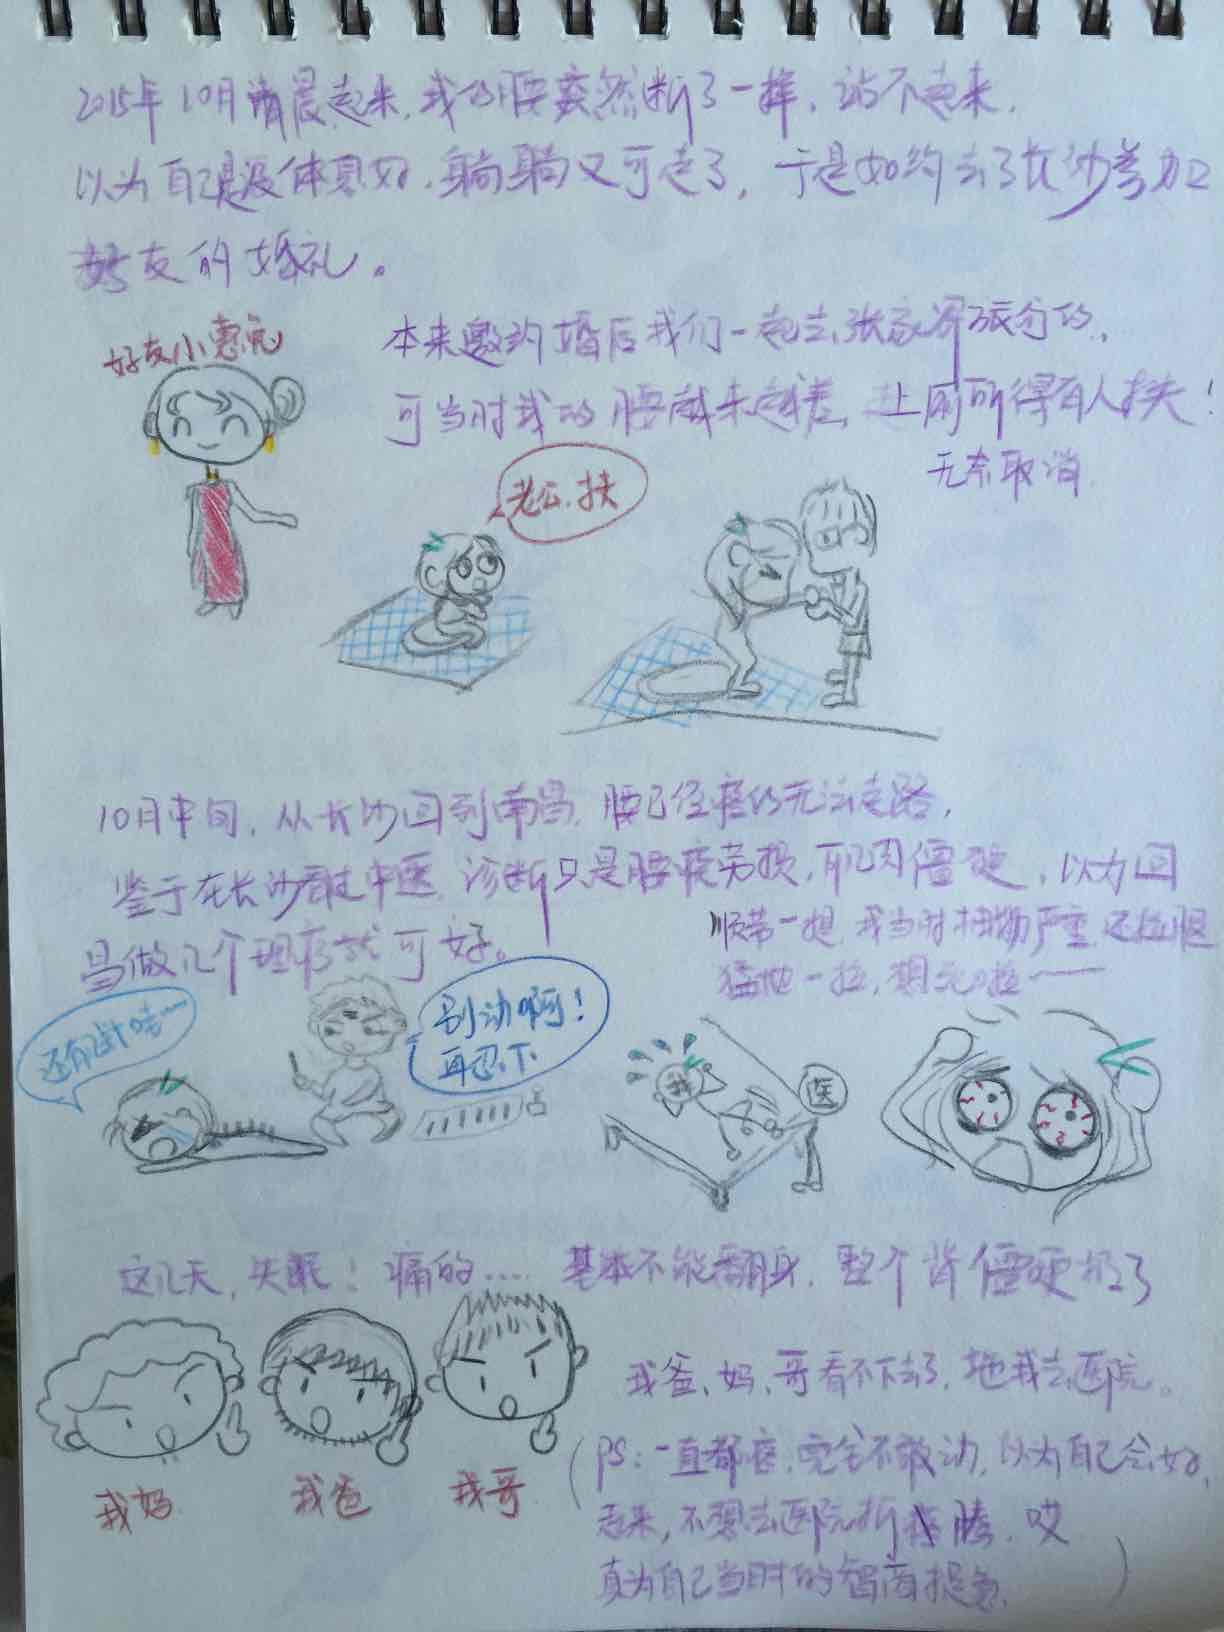 2015年10月清晨起来,我的腰突然断了一样,站不起来.
以为自己是没休息好,躺躺又可走了,于是如约去了长沙参加
好友的婚礼。
好友小惠儿
本来邀约婚后我们一起去张家界旅行的,
可当时我的腰越来越差,上厕所得有人扶!
无奈取消.
老公,扶
10月中旬,从长沙回到南昌,腰已经痛的无法走路,
鉴于在长沙看过中医,诊断只是腰疲劳损,肌肉僵硬,以为回
昌做几个理疗就可好。
顺带一提,我当时拍物严重,还拉腿
猛地一拉,想死啦……
还有针哇……
别动啊!
再忍下
我
医
这几天,失眠!痛的....基本不能翻身,整个背僵硬极了
我爸、妈、哥看不下去了,拖我去医院。
我妈
我爸
我哥
(PS:一直都痛,完全不敢动,以为自己会好
起来,不想去医院折腾,哎
真为自己当时的智商捉急.)